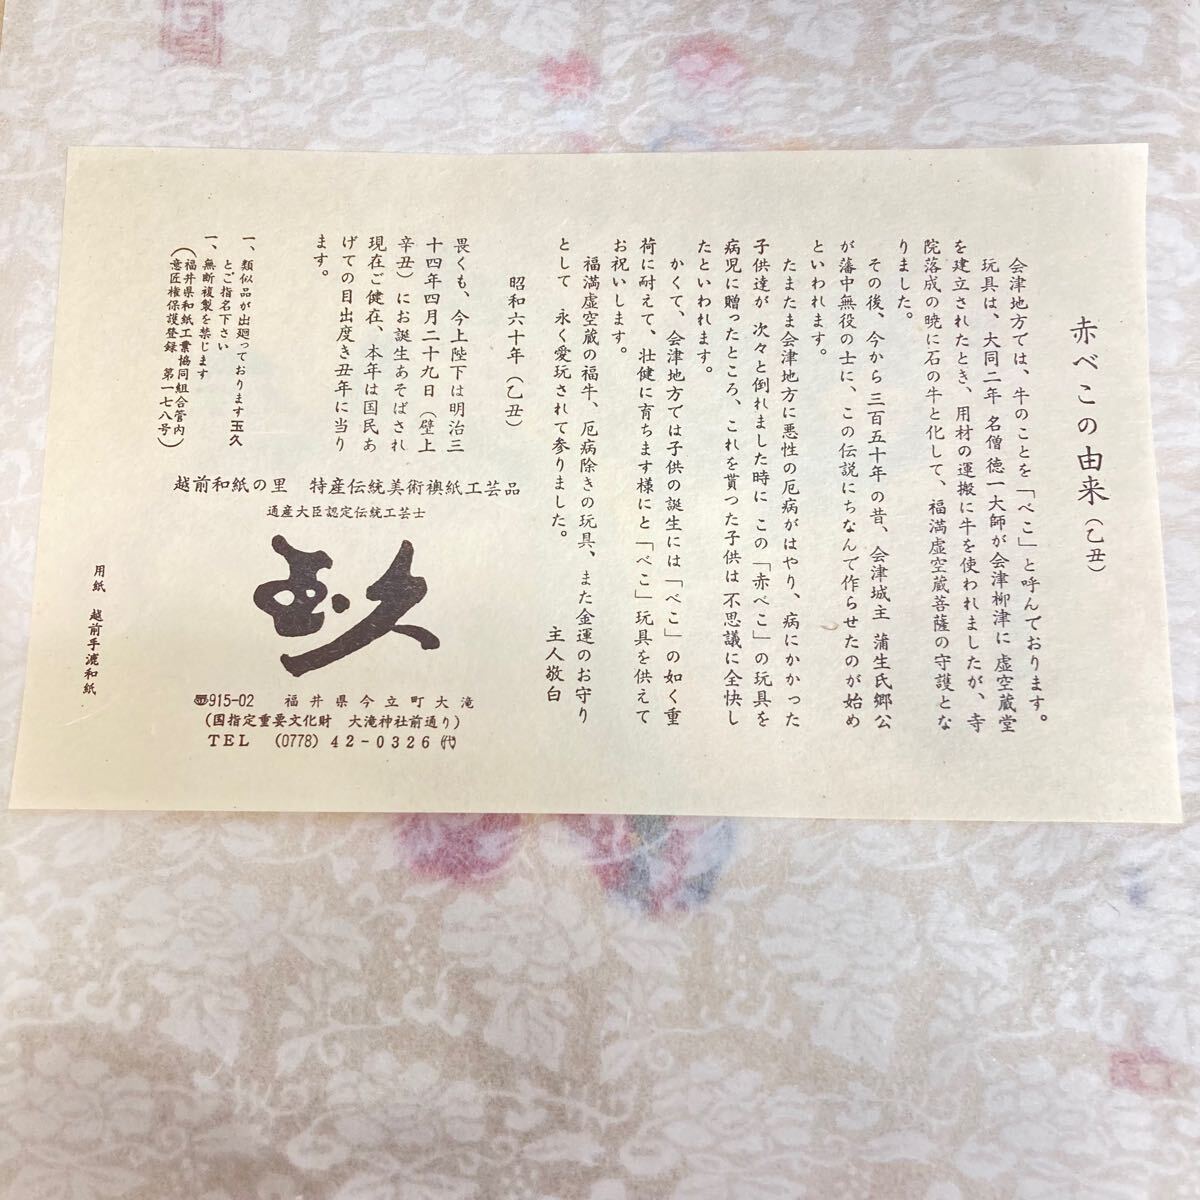 赤べこの由来（乙丑）
会津地方では、牛のことを「べこ」と呼んでおります。
玩具は、大同二年 名僧 徳一大師が会津柳津に 虚空蔵堂
を建立されたとき、用材の運搬に牛を使われましたが、寺
院落成の暁に石の牛と化して、福満虚空蔵菩薩の守護とな
りました。
その後、今から 三百五十年の昔、会津城主 蒲生氏郷公
が藩中無役の士に、この伝説にちなんで作らせたのが始め
といわれます。
たまたま会津地方に悪性の厄病がはやり、病にかかった
子供達が 次々と倒れました時に この「赤べこ」の玩具を
病児に贈ったところ、これを貰った子供は 不思議に全快し
たといわれます。
かくて、会津地方では子供の誕生には「べこ」の如く重
荷に耐えて、壮健に育ちます様にと「べこ」玩具を供えて
お祝いします。
福満虚空蔵の福牛、厄病除きの玩具、また金運のお守り
として 永く愛玩されて参りました。
主人敬白
昭和六十年（乙丑）
畏くも、今上陛下は明治三
十四年四月二十九日（壁上
辛丑）にお誕生あそばされ
現在ご健在、本年は国民あ
げての目出度き丑年に当り
ます。
一、類似品が出廻っております玉久
とご指名下さい
一、無断複製を禁じます
（福井県和紙工業協同組合管内
意匠権保護登録 第一七八号）
越前和紙の里 特産伝統美術襖紙工芸品
通産大臣認定伝統工芸士
玉久
☎915-02 福井県今立町大滝
（国指定重要文化財 大滝神社前通り）
TEL （0778）42-0326㈹
用紙 越前手漉和紙